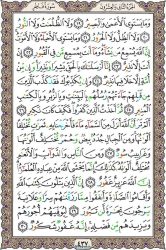 الجزء الثاني والعشرون سورة فاطر
وَمَا يَسْتَوِي الْأَعْمَىٰ وَالْبَصِيرُ ١٩ وَلَا الظُّلُمَاتُ وَلَا النُّورُ
٢٠ وَلَا الظِّلُّ وَلَا الْحَرُورُ ٢١ وَمَا يَسْتَوِي الْأَحْيَاءُ وَلَا الْأَمْوَاتُ
إِنَّ اللَّهَ يُسْمِعُ مَن يَشَاءُ وَمَا أَنتَ بِمُسْمِعٍ مَّن فِي الْقُبُورِ ٢٢ إِنْ
أَنتَ إِلَّا نَذِيرٌ ٢٣ إِنَّا أَرْسَلْنَاكَ بِالْحَقِّ بَشِيرًا وَنَذِيرًا وَإِن مِّنْ أُمَّةٍ
إِلَّا خَلَا فِيهَا نَذِيرٌ ٢٤ وَإِن يُكَذِّبُوكَ فَقَدْ كَذَّبَ الَّذِينَ
مِن قَبْلِهِمْ جَاءَتْهُمْ رُسُلُهُم بِالْبَيِّنَاتِ وَبِالزُّبُرِ وَبِالْكِتَابِ
الْمُنِيرِ ٢٥ ثُمَّ أَخَذْتُ الَّذِينَ كَفَرُوا فَكَيْفَ كَانَ نَكِيرِ ٢٦
أَلَمْ تَرَ أَنَّ اللَّهَ أَنزَلَ مِنَ السَّمَاءِ مَاءً فَأَخْرَجْنَا بِهِ ثَمَرَاتٍ مُّخْتَلِفًا
أَلْوَانُهَا وَمِنَ الْجِبَالِ جُدَدٌ بِيضٌ وَحُمْرٌ مُّخْتَلِفٌ أَلْوَانُهَا
وَغَرَابِيبُ سُودٌ ٢٧ وَمِنَ النَّاسِ وَالدَّوَابِّ وَالْأَنْعَامِ
مُخْتَلِفٌ أَلْوَانُهُ كَذَٰلِكَ إِنَّمَا يَخْشَى اللَّهَ مِنْ عِبَادِهِ الْعُلَمَاءُ
إِنَّ اللَّهَ عَزِيزٌ غَفُورٌ ٢٨ إِنَّ الَّذِينَ يَتْلُونَ كِتَابَ اللَّهِ
وَأَقَامُوا الصَّلَاةَ وَأَنفَقُوا مِمَّا رَزَقْنَاهُمْ سِرًّا وَعَلَانِيَةً
يَرْجُونَ تِجَارَةً لَّن تَبُورَ ٢٩ لِيُوَفِّيَهُمْ أُجُورَهُمْ
وَيَزِيدَهُم مِّن فَضْلِهِ إِنَّهُ غَفُورٌ شَكُورٌ ٣٠
٤٣٧